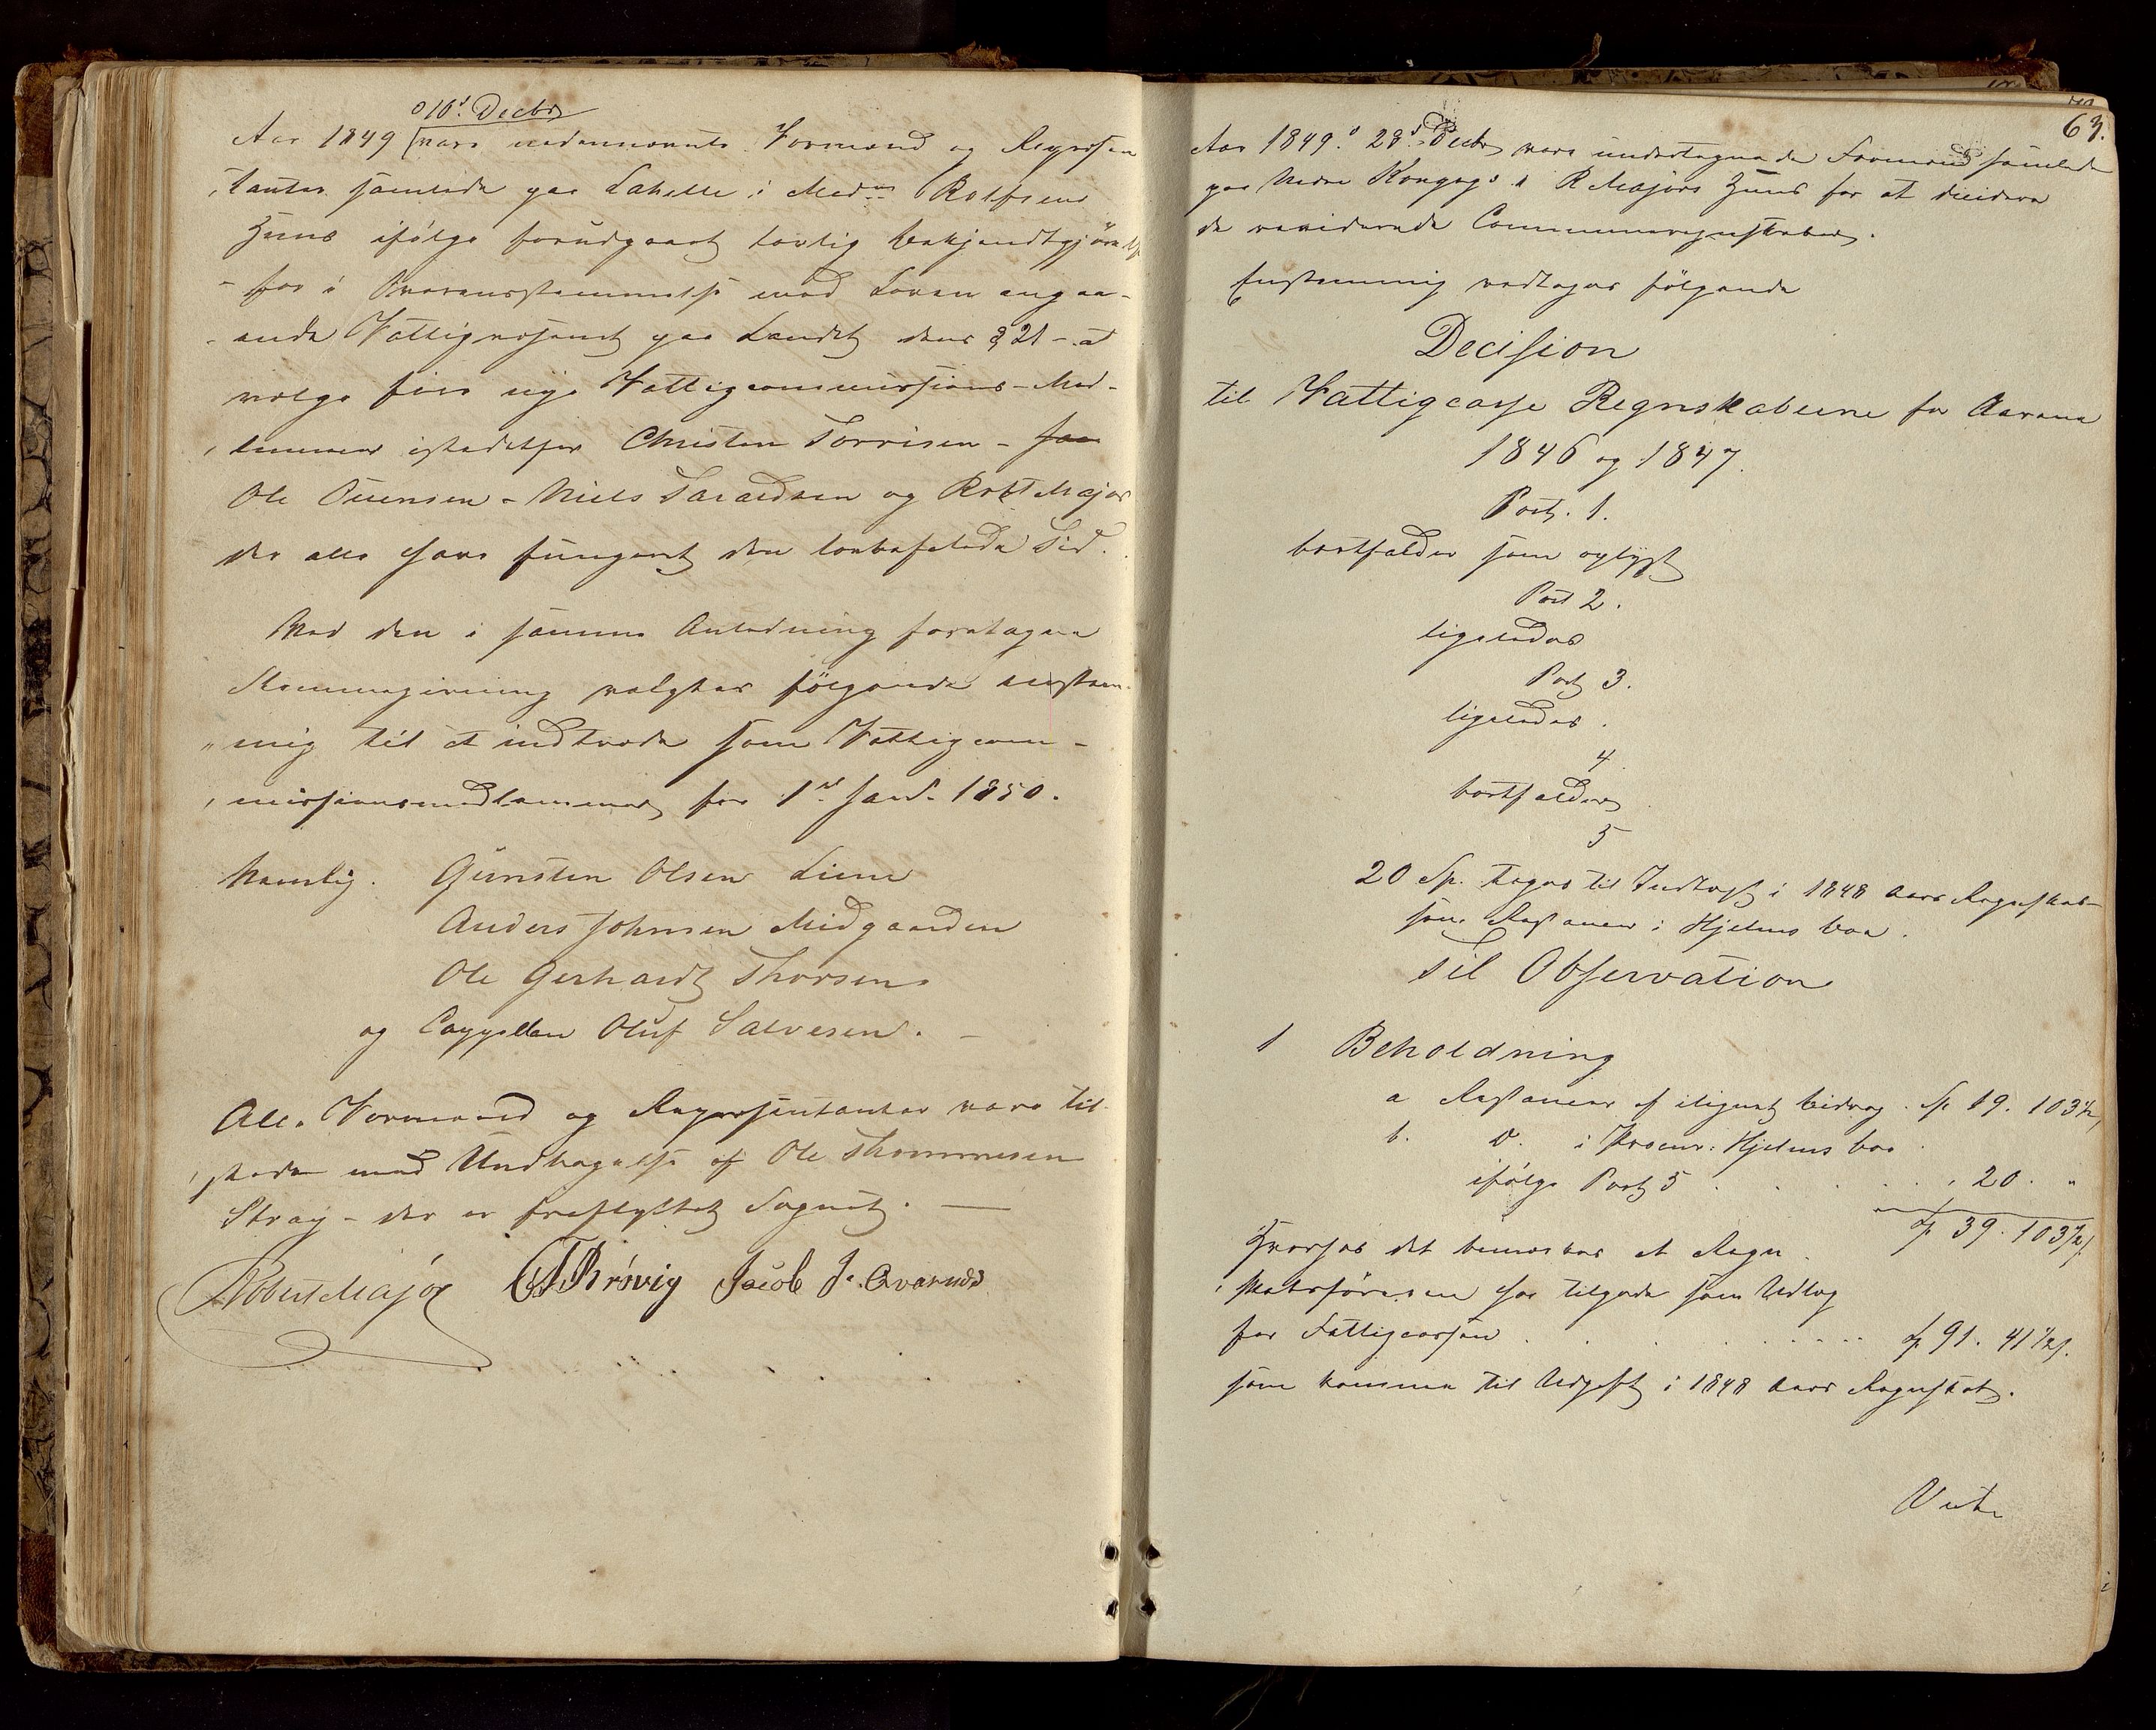 10d Decbr
Aar 1849 vare nedennævnte Formænd og Repræsen
tanter samlede paa Lahelle i Madme Rolfsens
Huus ifølge forudgaaet lovlig bekjendtgjørelse
- for i Overensstemmelse med Loven angaa-
ende Fattigvæsenet paa Landet dens § 21 - at
vælge fire nye Fattigcommissions-Med-
lemmer istedetfor Christen Torrisen -
Ole Ouensen - Niels Taraldsen og Robt Major
der alle have fungeret den lovbefalede Tid.
Ved den i samme Anledning foretagne
Stemmegivning valgtes følgende eenstem-
mig til at indtræde som Fattigcom-
missionsmedlemmer fra 1ste Jan. 1850.
Nemlig. Gunsten Olsen Liene
Anders Johnsen Midgaarden
Ole Gerhardt Thorsen
og Coppelan Oluf Salvesen. -
Alle Formænd og Repræsentanter vare til
stede med Undtagelse af Ole Thommesen
Stray - der er fraflyttet Sognet. -
Robert Major Jacob J. Qvarnes
63.
Aar 1849 28d Decbr vare undertegnede Formænd samlede
paa Nedre i R Majors Huus for at decidere
de reviderede Communeregnskaber.
Eenstemmig vedtages følgende
Decision
til Fattigcasse Regnskaberne for Aarene
1846 og 1847.
Post. 1.
bortfalder som oplyst
Post 2.
ligeledes
Post 3.
ligeledes.
4
bortfalder
5
20 Sp. tages til Indtægt i 1848 Aars Regnskab
som Restancer i Hjelms boe.
Til Observation
1 Beholdning
a Restancer af ilignet bidrag. Sp 19. 103 1/2
b. D. i Procur: Hjelms boe
ifølge Post 5 . . . . . 20. "
Sp 39. 103 1/2 s.
Hvorhos det bemærkes at Regn
skabsføreren har tilgode som Udlæg
for Fattigcassen . . . . . . . Sp 91. 41 1/2 s.
som komme til Udgift i 1848 Aars Regnskab.
Vert.